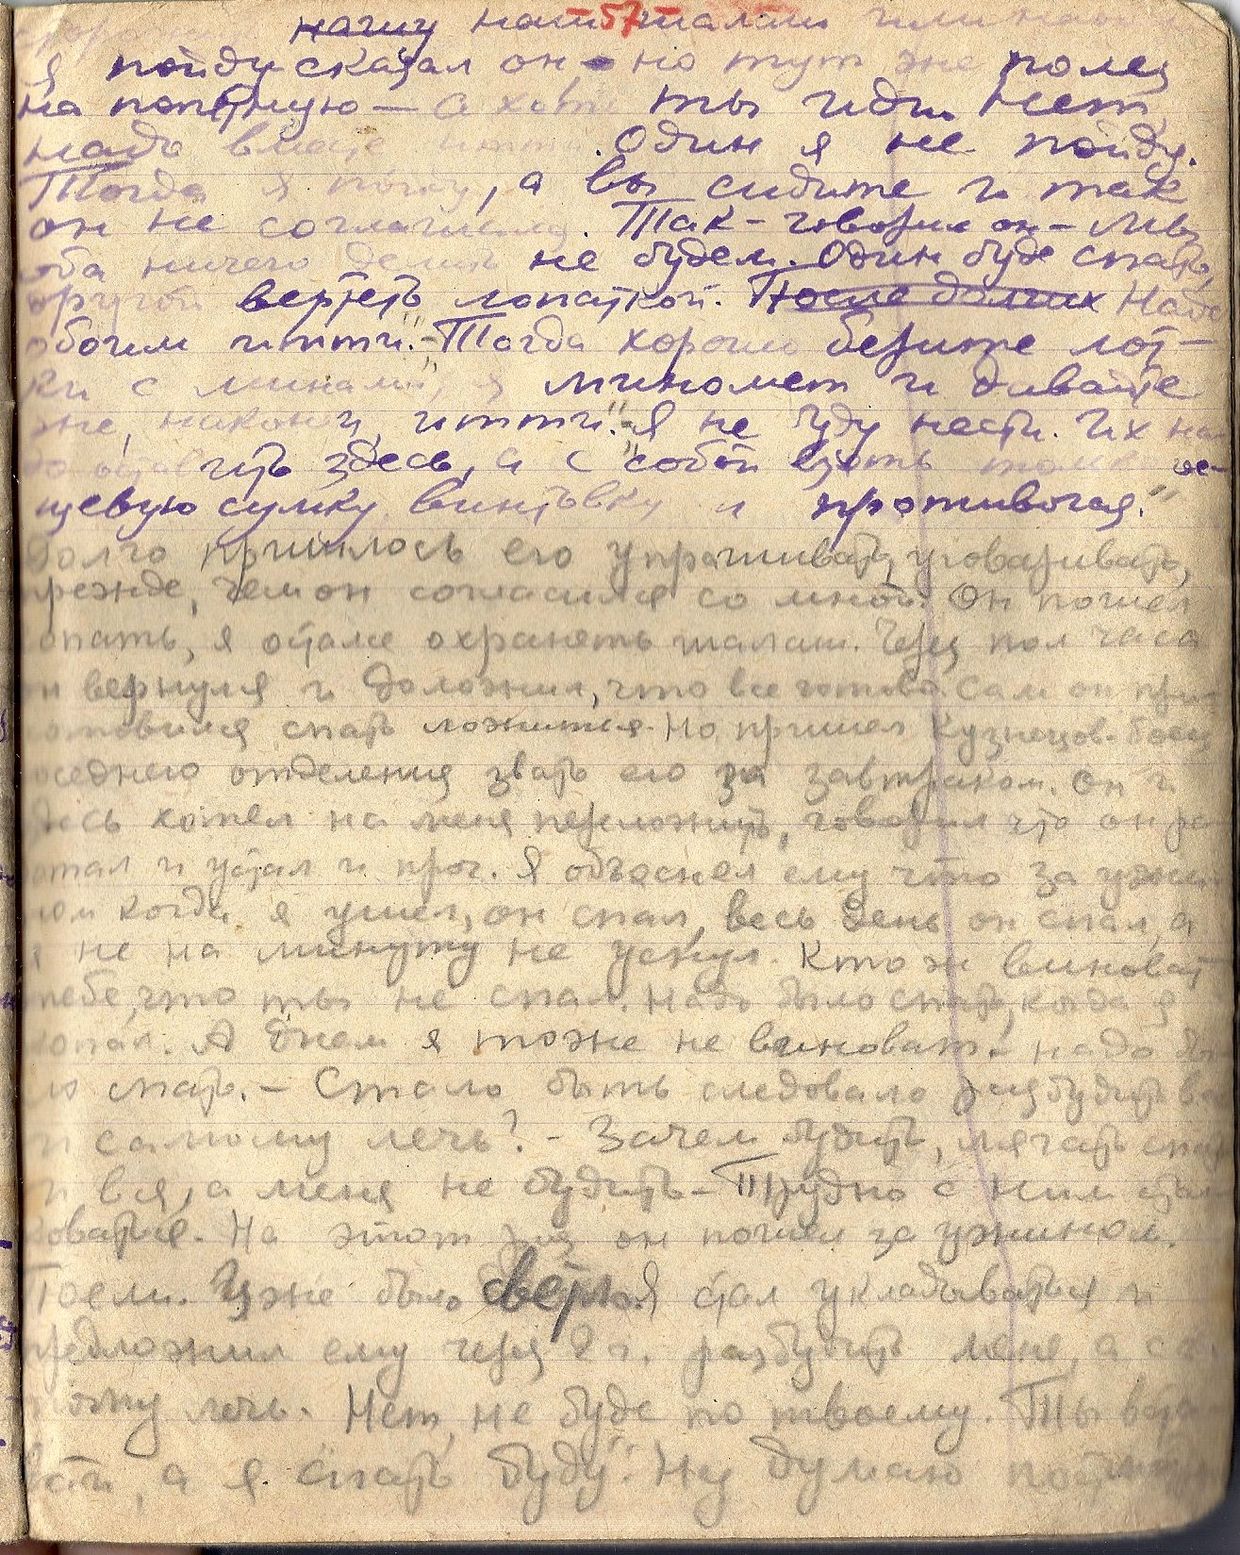 нашу наш 57 шалаш или
Я пойду сказал он, но тут же полез
на попятную — а хотя ты иди. Нет,
надо вместе итти. Один я не пойду.
Тогда я пойду, а вы сидите и так
он не согласился. Так – говорил он – Мы
оба ничего делить не будем. Один буде спать,
другой вертеть лопаткой. После долгих Надо
обоим итти. – Тогда хорошо берите лот-
ки с минами, я миномет и давайте
же, наконец, итти." – "Я не буду нести. Их на-
до оставить здесь, а с собой взять только ве-
щевую сумку, винтовку и противогаз."
Долго пришлось его упрашивать, уговаривать,
прежде, чем он согласился со мной. Он пошел
копать, я остался охранять шалаш. Через пол часа
он вернулся и доложил, что все готово. Сам он при-
готовился спать ложится. Но пришел Кузнецов – боец
соседнего отделения звать его за завтраком. Он и
здесь хотел на меня переложить, говорил что он ра-
ботал и устал и проч. Я объяснил ему что за ужи-
ном когда я ушел, он спал, весь день он спал, а
я не на минуту не уснул. Кто ж виноват
тебе, что ты не спал. Надо было спать, когда я
копал. А днем я тоже не виноват – надо бы-
ло спать. – Стало быть следовало разбудить вас
и самому лечь? – Зачем будить, лягать спать
и вся, а меня не будить – Трудно с ним стол-
коваться. На этот раз он пошел за ужином.
Поели. Уже было светло. Я стал укладываться и
предложил ему через 2 ч. разбудить меня, а са-
мому лечь. Нет, не буде по твоему. Ты
а я спать буду". Ну думаю